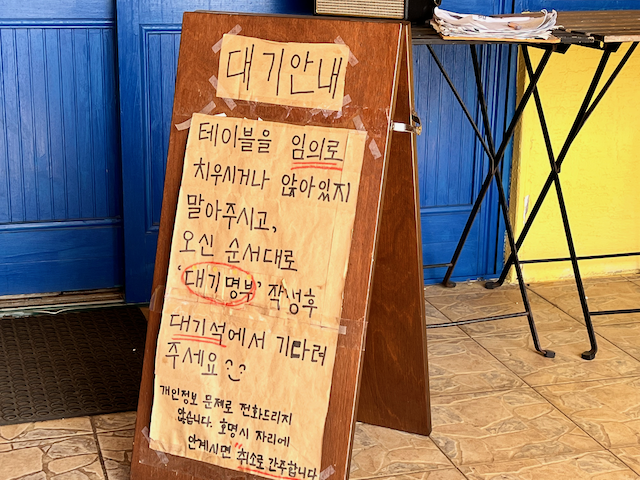 대기안내
테이블을 임의로
치우시거나 앉아있지
말아주시고,
오신 순서대로
'대기명부' 작성후
대기석에서 기다려
주세요
개인정보 문제로 전화드리지
않습니다. 호명시 자리에
안계시면 "취소로 간주합니다